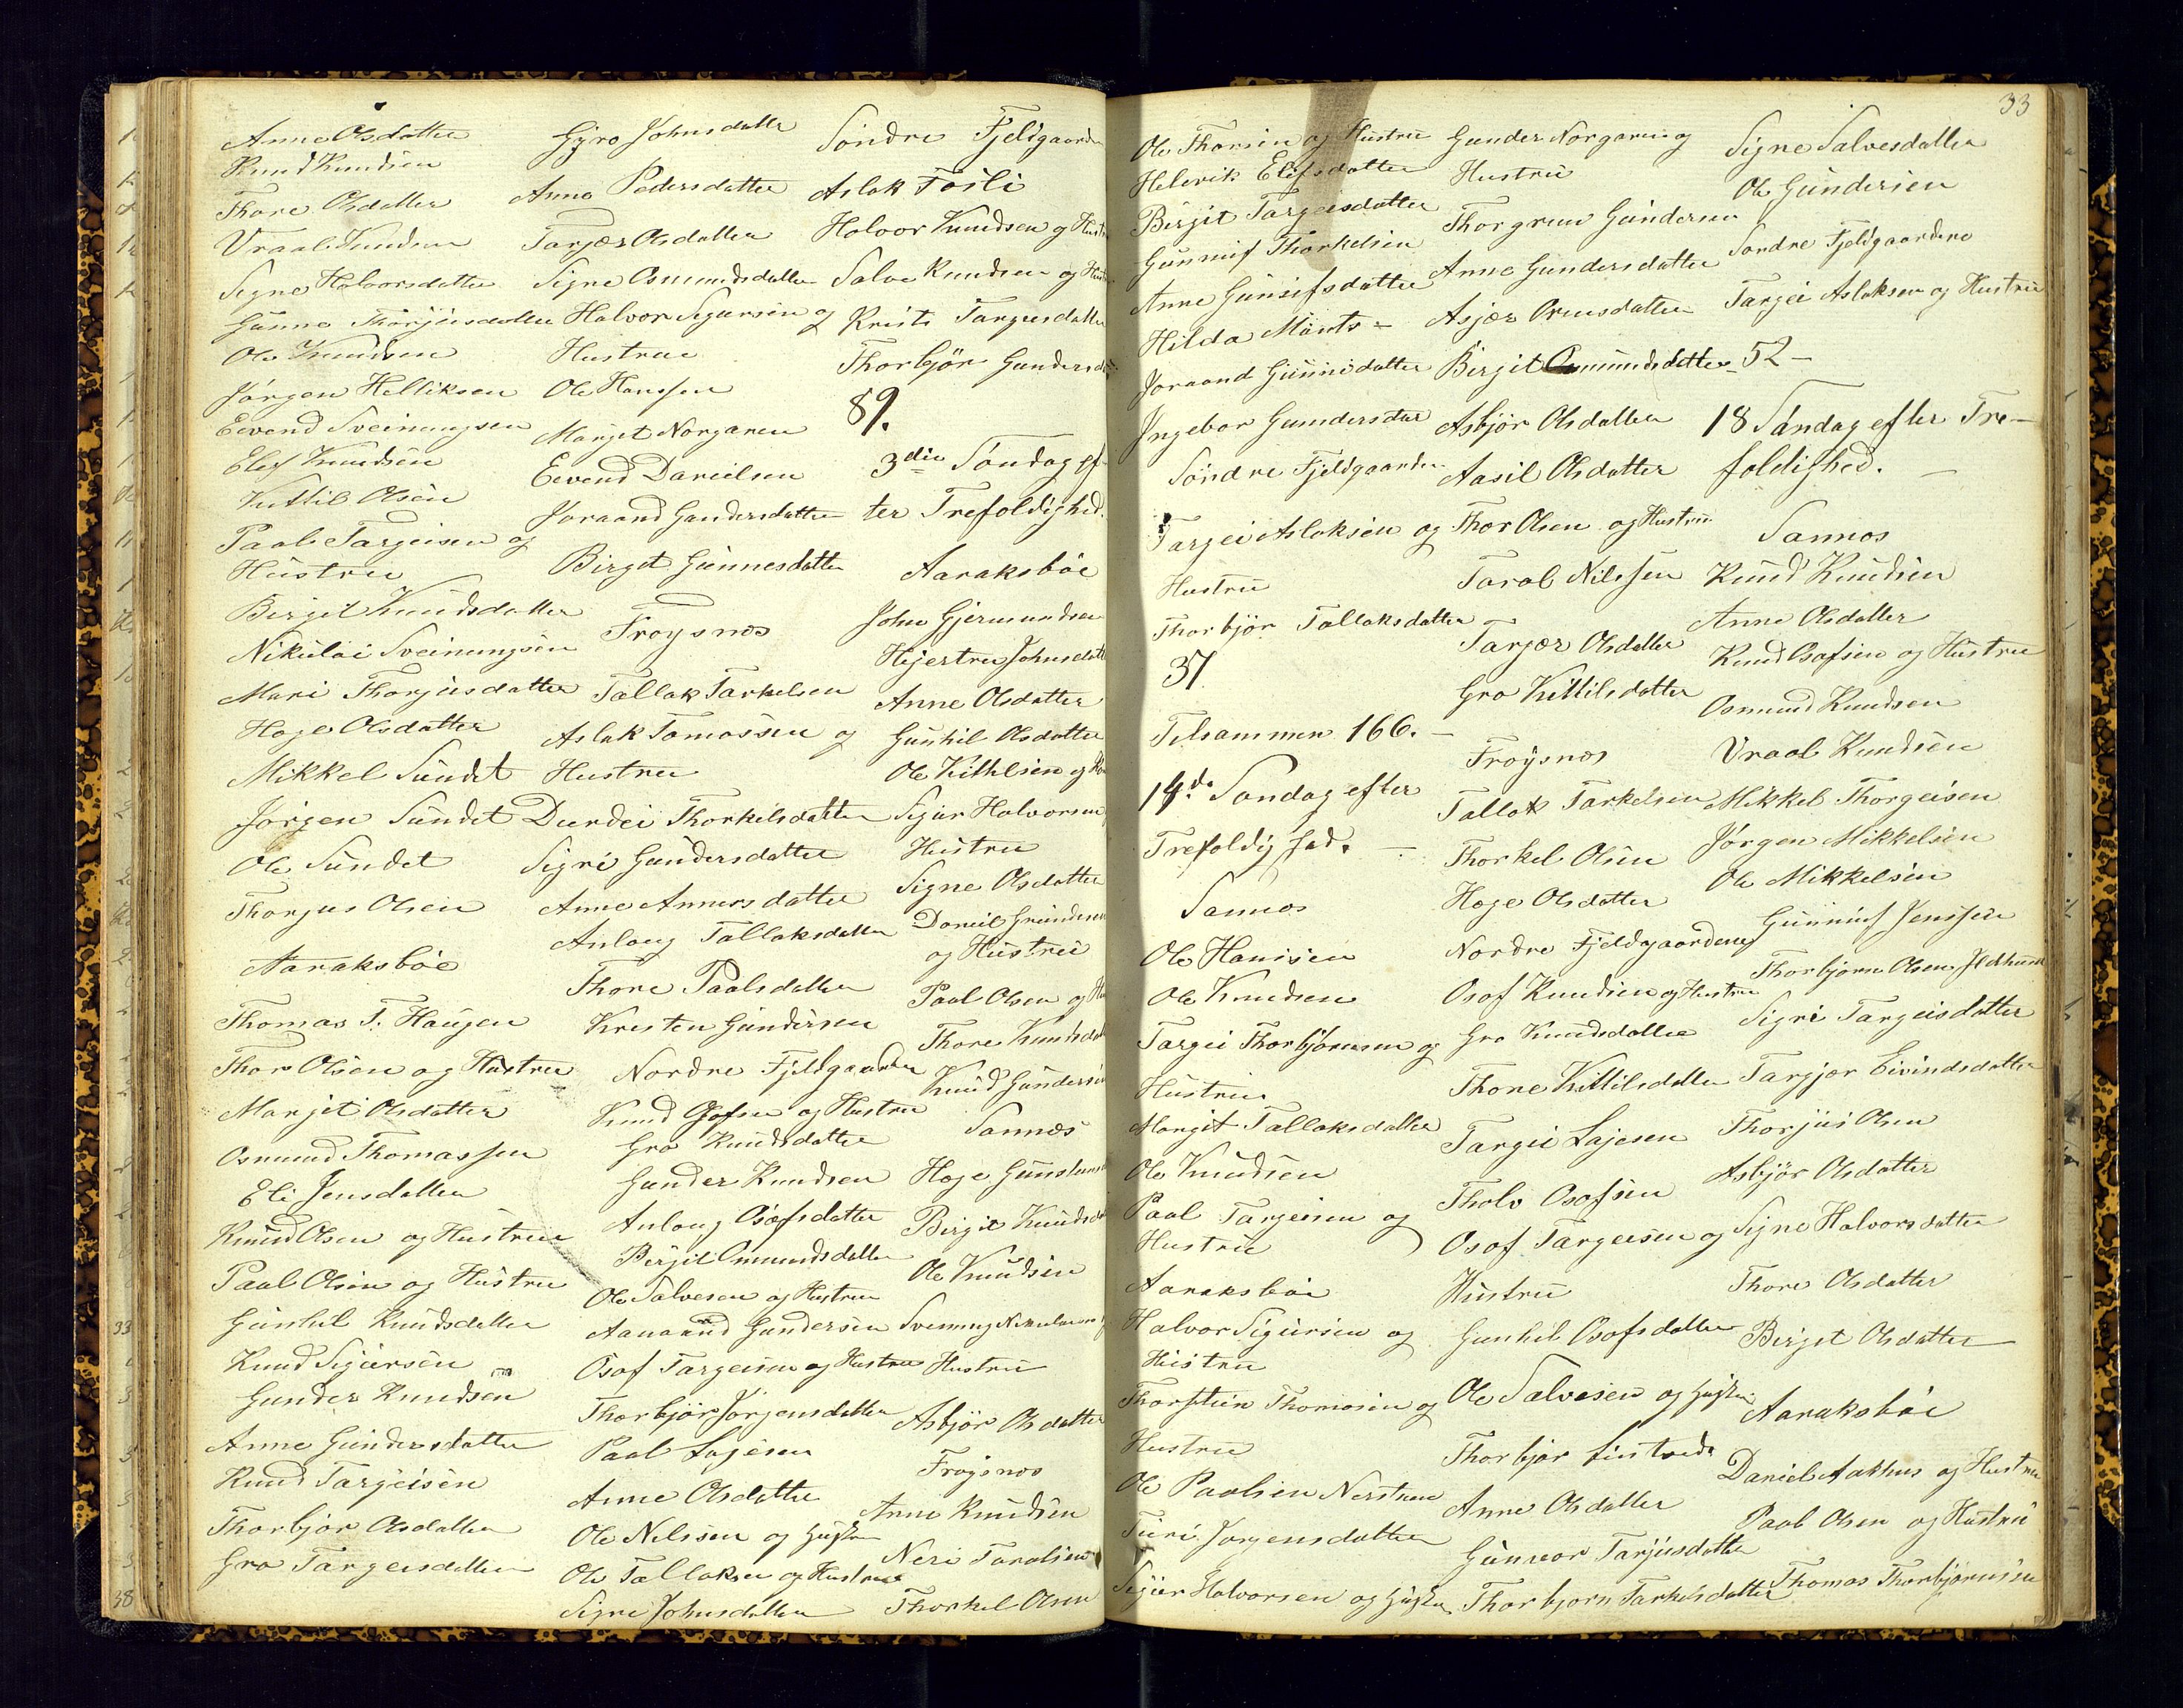 Anne Olsdatter
Knud Knudsen
Thore Olsdatter
Vraal Knudsen
Signe Halvorsdatter
Gunne Thorjusdatter
Ole Knudsen
Jørgen Helliksen
Eevend Sveinungsen
Elef Knudsen
Kittil Olsen
Paal Targeisen og
Hustrue
Birgit Knudsdatter
Nikulai Sveinungsen
Mari Thorjusdatter
Hoge Olsdatter
Mikkel Sundet
Jørgen Sundet
Ole Sundet
Thorjus Olsen
Aaraksböe
Thomas T. Haugen
Thor Olsen og Hustrue
Margit Olsdatter
Osmund Thomassen
Eli Jensdatter
Knud Olsen og Hustrue
Paal Olsen og Hustrue
Gunhil Knudsdatter
Knud Sigursen
Gunder Knudsen
Anne Gundersdatter
Knud Targeisen
Thorbjør Olsdatter
Gro Targeisdatter
Gyro Johnsdatter
Anne Pedersdatter
Tarjær Olsdatter
Signe Osmundsdatter
Halvor Sigursen og
Hustrue
Ole Hansen
Margit Norgaren
Eevend Danielsen
Joraand Gundersdatter
Birgit Gunnesdatter
Froysnæs
Tallak Tarkelsen
Aslak Tomassen og
Hustrue
Durdei Thorkelsdatter
Sigri Gundersdatter
Anne Annersdatter
Anlaug Tallaksdatter
Thore Paalsdatter
Kresten Gundersen
Nordre Fjeldgaarden
Knud Osofsen og Hustrue
Gro Knudsdatter
Gunder Knudsen
Anlaug Osofsdatter
Birgit Omundsdatter
Ole Salvesen og Hustrue
Aanaand Gundersen
Osof Targeisen og Hustrue
Thorbjør Jørgensdatter
Paal Lajesen
Anne Olsdatter
Ole Nilssen og Hustru
Ole Tallaksen og Hustrue
Signe Johnsdatter
Sondre Fjeldgaarden
Aslak Fosli
Halvor Knudsen og
Salve Knudsen og
Kristi Targeisdatter
Thorbjør
89.
3die Søndag ef-
ter Trefoldighed.
Aaraksböe
John Gjermundsen
Hejertru Johnsdatter
Anne Olsdatter
Gunhil Olsdatter
Ole Kittelsen og
Sigur Halvorsen
Hustrue
Signe Olsdatter
Daniel Gundersen
og Hustrue
Paal Olsen og
Thore
Knud Gundersen
Sannæs
Hoge
Birgit
Ole Knudsen
Hustrue
Asbjør Olsdatter
Froysnæs
Anne Knudsen
Neri Taralsen
Thorkel Olsen
33
Ole Thorsen og Hustrue
Helevik Elefsdatter
Birgit Targeisdatter
Gunnuf Thorkelsen
Anne Gunufsdatter
Hilda Monts -
Joraand Gunnisdatter
Ingebor Gundersdat
Søndre Fjeldgaarden
Targei Aslaksen og
Hustrue
Thorbjør Tallaksdatter
37
Tilsammen 166. -
14de Søndag efter
Trefoldighed.
Sannæs
Ole Hansen
Ole Knudsen
Targei Thorbjørnsen og
Hustrue
Margit Tallaksdatter
Ole Knudsen
Paal Targeisen og
Hustrue
Aaraksböe
Halvor Sigursen og
Hustrue
Thorstein Thomasen og
Hustrue
Ole Paalsen Nerstruen
Turi Jørgensdatter
Sigur Halvorsen og Hustru
Gunder Norgaren og
Hustrue
Thorgrun Gundersen
Anne Gundersdatter
Asjær Orensdatter
Birgit Osmundsdatter
Asbjør Olsdatter
Aasil Olsdatter
Thor Olsen og Hustrue
Taral Nilssen
Tarjær Olsdatter
Gro Kittilsdatter
Froysnæs
Tallak Tarkelsen
Thorkel Olsen
Hoge Olsdatter
Nordre Fjeldgaardene
Osof Knudsen og Hustrue
Gro Knudsdatter
Thone Kittilsdatter
Targei Lajesen
Tholv Osofsen
Osof Targeisen og
Hustrue
Gunhil Osofsdatter
Ole Salvesen og Hustru
Thorbjør
Anne Olsdatter
Gunvor Tarjusdatter
Thorbjorn Tarkelsdatter
Signe Salvesdatter
Ole Gundersen
Sondre Fjeldgaardene
Targei Aslaksen og Hustrue
52 -
18 Søndag efter Tre-
foldighed.
Sannæs
Knud Knudsen
Anne Olsdatter
Knud Osofsen og Hustrue
Osmund Knudsen
Vraal Knudsen
Mikkel Thorgeisen
Jørgen Mikkelsen
Ole Mikkelsen
Gunnuf Jenssen
Thorbjørn Olsen
Sigri Targeisdatter
Targjær Eivindsdatter
Thorjus Olsen
Asbjør Olsdatter
Signe Halvorsdatter
Thore Olsdatter
Birgit Olsdatter
Aaraksböe
Daniel Aakhus og Hustrue
Paal Olsen og Hustrue
Thomas Thorbjørnsen